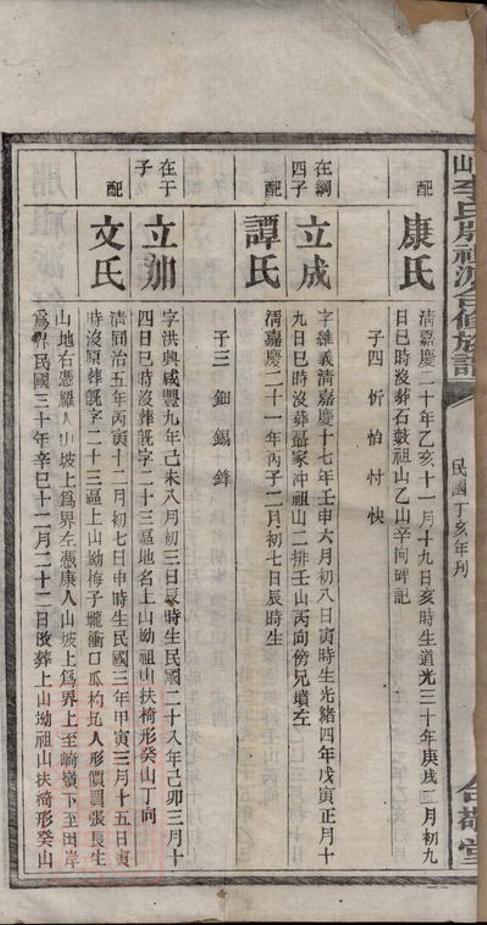 山李氏房祖派合修族譜
民國丁亥年刊
合敬堂
配
康氏
清嘉慶二十年乙亥十一月十九日亥時生道光三十年庚戌二月初九
日巳時沒葬石鼓祖山乙山辛向碑記
子四 忻怕忖快
在綱
四子
立成
字維義清嘉慶十七年壬申六月初八日寅時生光緒四年戊寅正月十
九日巳時沒葬聶家冲祖山二排壬山丙向傍兄墳左
配
譚氏
清嘉慶二十一年丙子二月初七日辰時生
子三 鈿錫鋒
在于
子
立加
字洪興咸豐九年己未八月初三日辰時生民國二十八年己卯三月十
四日巳時沒葬毓字二十三區地名上山坳祖山扶椅形癸山丁向
配
文氏
清同治五年丙寅十二月初七日申時生民國三年甲寅三月十五日寅
時沒原葬毓字二十三區上山坳梅子壠衝口瓜杓坵人形價買張長生
山地右憑羅人山坡上爲界左憑康人山坡上爲界上至崎嶺下至田岸
爲界民國三十年辛巳十二月二十二日改葬上山坳祖山扶椅形癸山